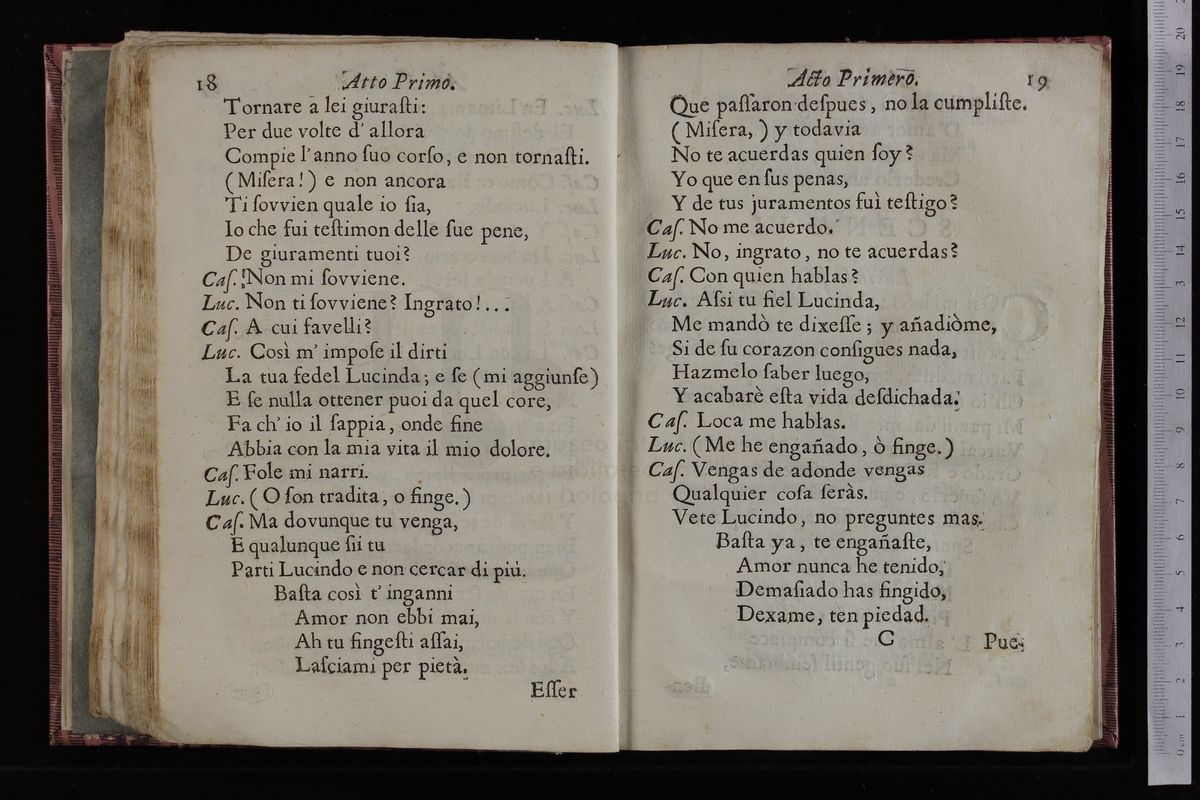 18 Atto Primo.
Tornare à lei giuraſti:
Per due volte d' allora
Compie l'anno ſuo corſo, e non tornaſti.
(Miſera!) e non ancora
Ti ſovvien quale io ſia,
Io che fui teſtimon delle ſue pene,
De giuramenti tuoi?
Caſ. Non mi ſovviene.
Luc. Non ti ſovviene? Ingrato!...
Caſ. A cui favelli?
Luc. Così m' impoſe il dirti
La tua fedel Lucinda; e ſe (mi aggiunſe)
E ſe nulla ottener puoi da quel core,
Fa ch' io il ſappia, onde fine
Abbia con la mia vita il mio dolore.
Caſ. Fole mi narri.
Luc. (O ſon tradita, o finge.)
Caſ. Ma dovunque tu venga,
E qualunque ſii tu
Parti Lucindo e non cercar di più.
Baſta così t' inganni
Amor non ebbi mai,
Ah tu fingeſti aſſai,
Laſciami per pietà.
Eſſer
Acto Primero. 19
Que paſſaron deſpues, no la cumpliſte.
(Miſera,) y todavia
No te acuerdas quien ſoy?
Yo que en ſus penas,
Y de tus juramentos fuì teſtigo?
Caſ. No me acuerdo.
Luc. No, ingrato, no te acuerdas?
Caſ. Con quien hablas?
Luc. Aſsi tu fiel Lucinda,
Me mandò te dixeſſe; y añadiòme,
Si de ſu corazon conſigues nada,
Hazmelo ſaber luego,
Y acabarè eſta vida deſdichada.
Caſ. Loca me hablas.
Luc. (Me he engañado, ò finge.)
Caſ. Vengas de adonde vengas
Qualquier coſa ſeràs.
Vete Lucindo, no preguntes mas.
Baſta ya, te engañaſte,
Amor nunca he tenido,
Demaſiado has fingido,
Dexame, ten piedad.
C Pue-